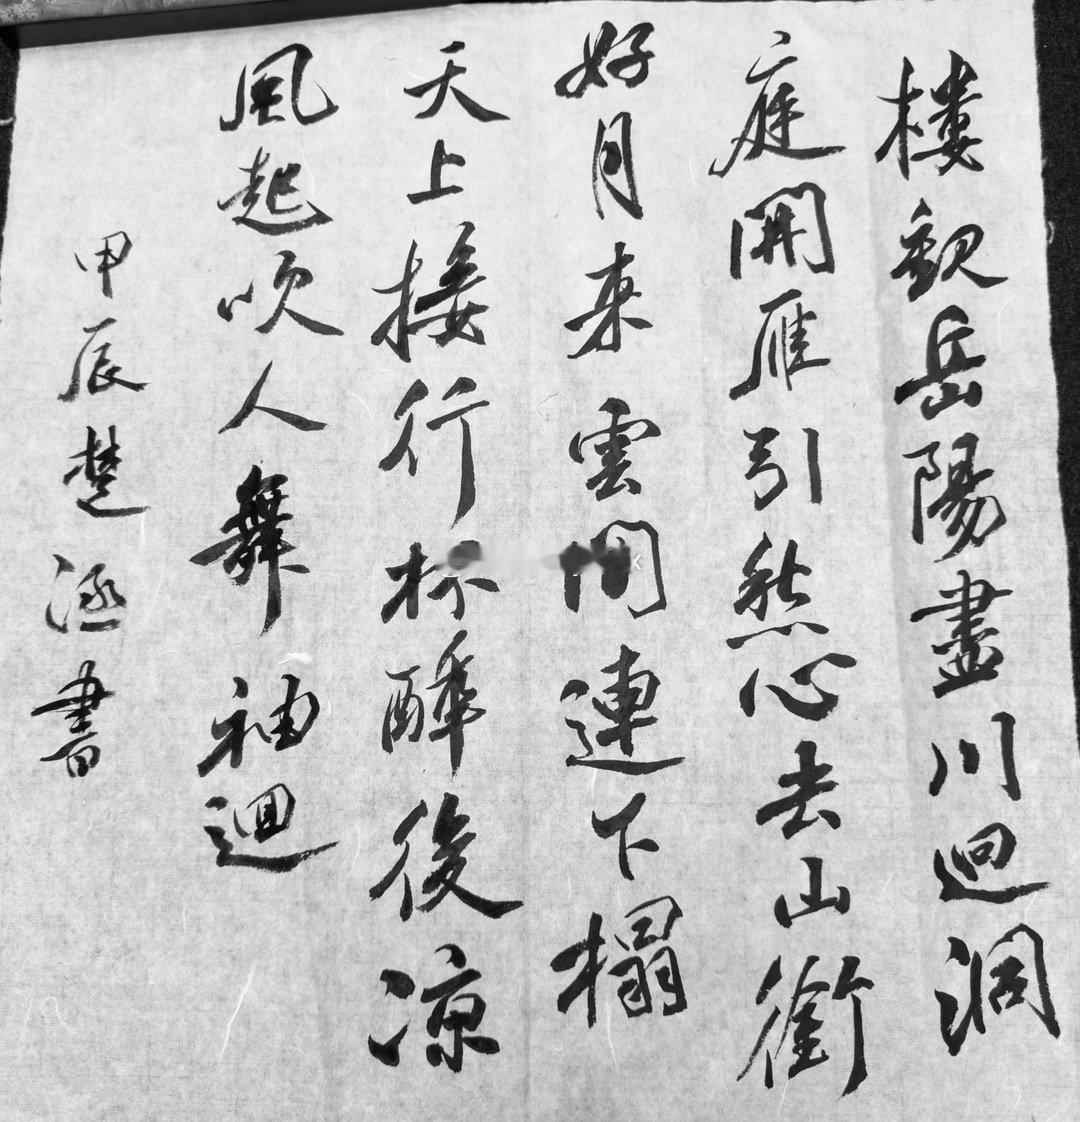 樓觀岳陽盡川迥洞
庭開雁引愁心去山銜
好月來雲間連下榻
天上接行杯醉後涼
風起吹人舞袖迴
甲辰楚涵書